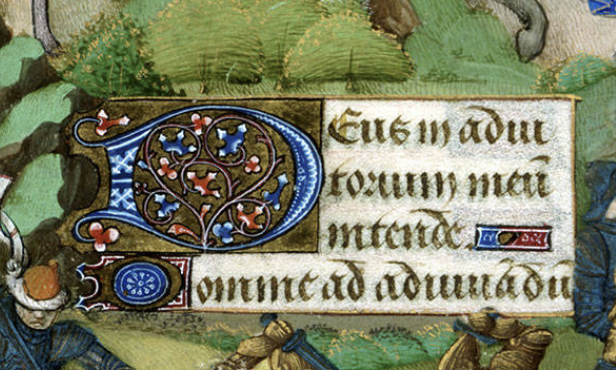 Deus in adiu
torium meū
intende.
Domine ad adiuuādū